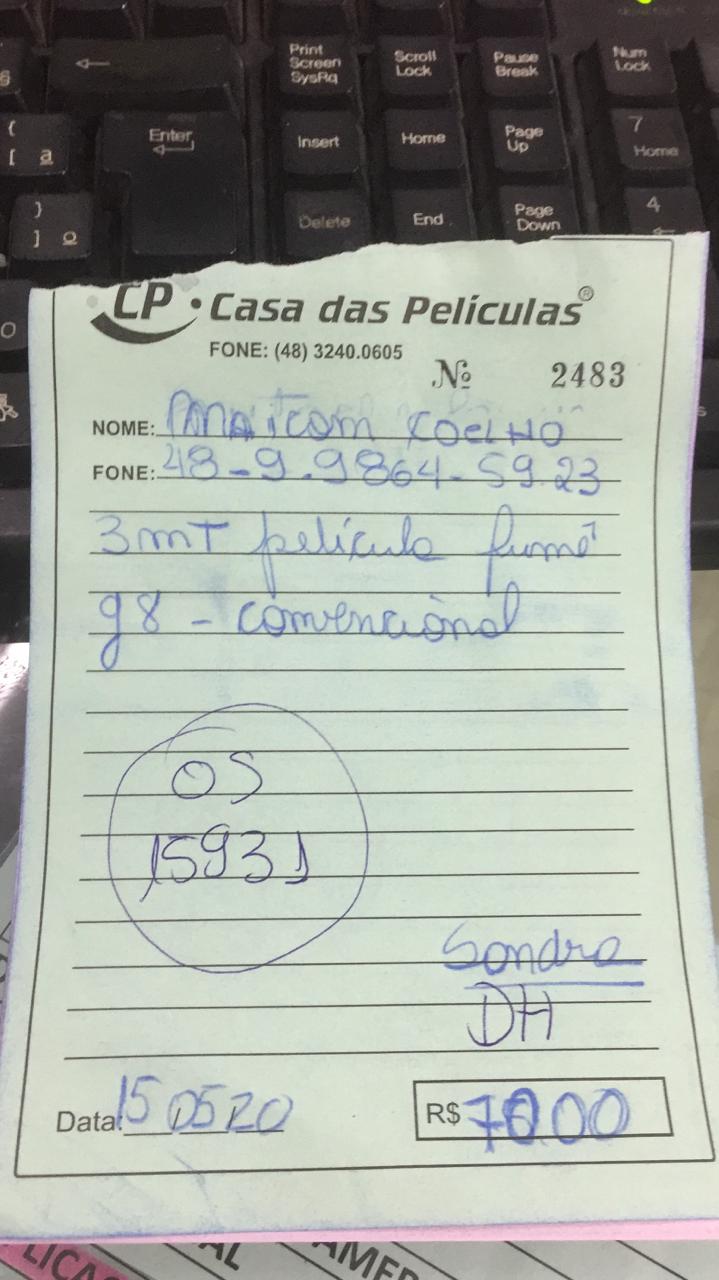 Print Screen SysRq
Scroll Lock
Pause Break
Num Lock
Enter
Insert
Home
Page Up
7 Home
Delete
End
Page Down
4
{
[ ª
}
] º
CP • Casa das Películas®
FONE: (48) 3240.0605
Nº 2483
NOME: Maicom COELHO
FONE: 48-9.9864-59.23
3mT película fumê
g8 - convencional
OS
15931
Sandra
DH
Data: 15 05 20
R$ 70.00